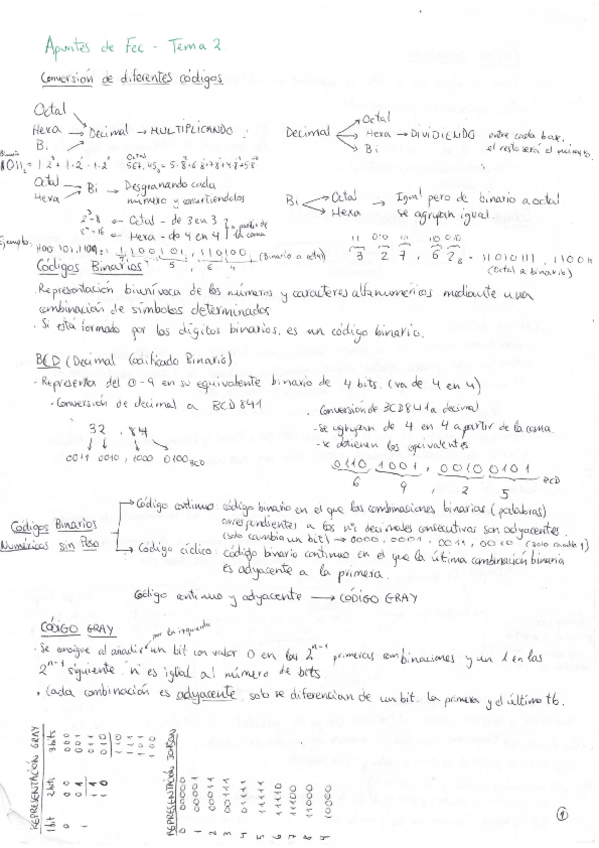 Apuntes de Fec - Tema 2.
Conversión de diferentes códigos
Octal
Hexa → Decimal → MULTIPLICANDO
Bi
Decimal → Octal
Hexa → DIVIDIENDO entre cada base,
Bi el resto será el número.
Octal
Hexa → Bi → Desgranando cada
número y convirtiendolos
2³=8 ← Octal - de 3 en 3
2⁴=16 ← Hexa - de 4 en 4 } a partir de la coma
Bi → Octal
Hexa → Igual pero de binario a octal
se agrupan igual.
Ejemplo:
(Binario a octal)
11 010 111 110 010
3 2 7, 6 2₈
(Octal a binario)
Códigos Binarios
· Representación biunívoca de los números y caracteres alfanumericos mediante una
combinación de símbolos determinados
· Si está formado por los dígitos binarios, es un código binario.
BCD (Decimal Codificado Binario)
- Representa del 0-9 en su equivalente binario de 4 bits. (va de 4 en 4)
- Conversión de decimal a BCD 841
32 . 84
0011 0010, 1000 0100 BCD
. Conversión de BCD 841 a decimal
- Se agrupan de 4 en 4 a partir de la coma.
- se obtienen los equivalentes
0110 1001, 0010 0101 BCD
6 9, 2 5
Códigos Binarios
Numéricos sin Peso
→ Código continuo: código binario en el que las combinaciones binarias (palabras)
correspondientes a los nºs decimales consecutivas son adyacentes.
(solo cambia un bit) → 0000, 0001, 0011, 0010 (solo cambia 1)
→ Código cíclico: código binario continuo en el que la última combinación binaria
es adyacente a la primera.
Código continuo y adyacente → CÓDIGO GRAY
CÓDIGO GRAY
por la izquierda
· Se consigue al añadir un bit con valor 0 en las 2ⁿ⁻¹ primeras combinaciones y un 1 en las
2ⁿ⁻¹ siguiente. n es igual al número de bits.
· Cada combinación es adyacente, solo se diferencian de un bit. la primera y el último tb.
REPRESENTACIÓN GRAY
1 bit 2 bits 3 bits
0 00 000
1 01 001
11 011
10 010
110
111
101
100
REPRESENTACIÓN JOHNSON
0 00000
1 00001
2 00011
3 00111
4 01111
5 11111
6 11110
7 11100
8 11000
9 10000
1